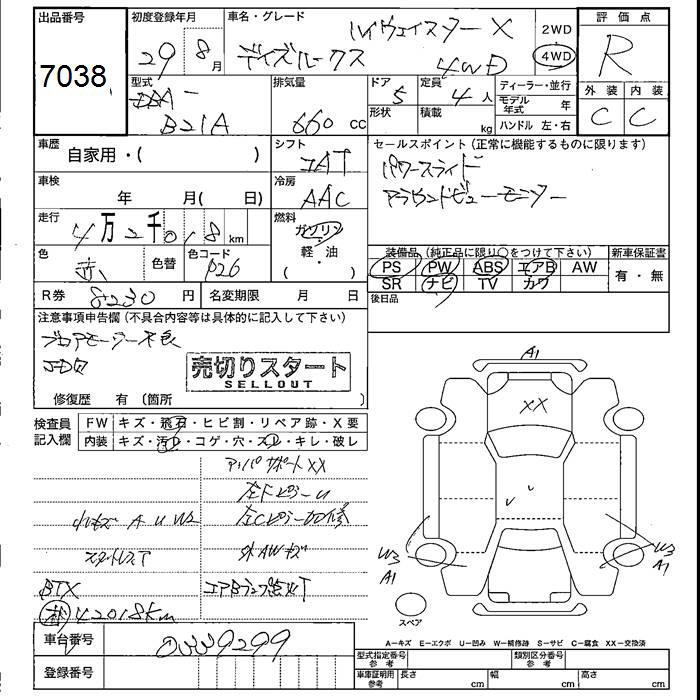 出品番号 初度登録年月 車名・グレード ハイウェイスター X 2WD 評価点
7038 29 8月 デイズルークス 4WD 4WD R
型式 排気量 ドア 定員 ディーラー・並行 外装 内装
DBA- 5 4人 モデル年式 年
B21A 660 cc 形状 積載 kg ハンドル 左・右 C C
車歴 自家用・( ) シフト セールスポイント(正常に機能するものに限ります)
IAT パワースライド
車検 年 月( 日) 冷房 AAC アラウンドビューモニター
走行 4万2千018km 燃料 ガソリン・軽・油 ( ・ )
色 赤 色替 色コード P26
装備品(純正品に限り○をつけて下さい) 新車保証書
PS PW ABS エアB AW 有・無
SR ナビ TV カワ
R券 8230円 名変期限 月 日 後日品
注意事項申告欄(不具合内容等は具体的に記入して下さい)
ブロアモーター不良
売切りスタート
SELLOUT
修復歴 有(箇所 )
A1
XX
検査員記入欄 FW キズ・飛石・ヒビ割・リペア跡・X要
内装 キズ・汚れ・コゲ・穴・スレ・キレ・破レ
アッパサポートXX
左Fピラーu
小キズ A U W2 左Cピラー加修
スタットレスT 外AWキズ
W3 A1
W3 A1
BTX エアBランプ点灯
42018km
スペア
A-キズ E-エクボ U-凹み W-補修跡 S-サビ C-腐食 XX-交換済
車台番号 0339299
型式指定番号 参考 類別区分番号 参考
登録番号
車庫証明用 参考 長さ cm 幅 cm 高さ cm